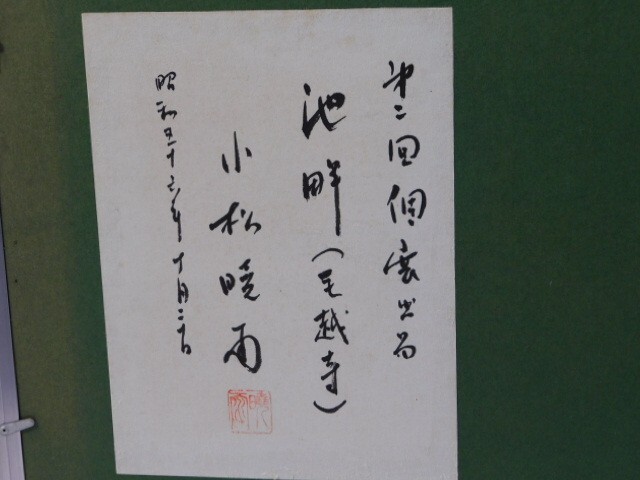 第二回個展出品
池畔(毛越寺)
小松暁雨
昭和五十六年十月二十日